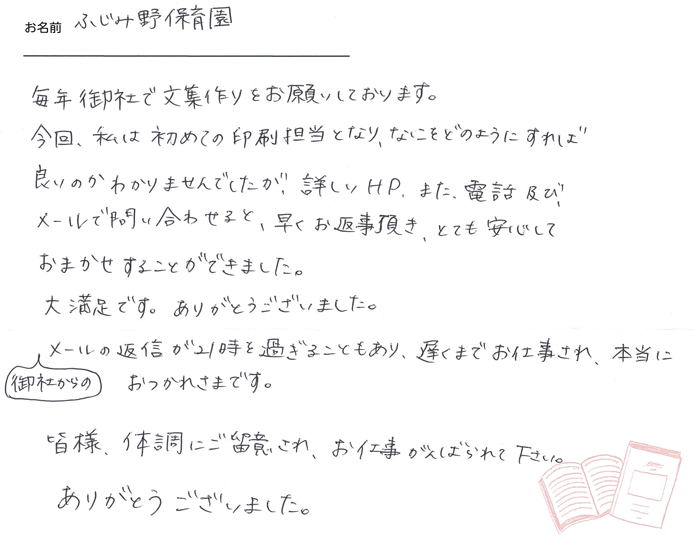 お名前 ふじみ野保育園
毎年御社で文集作りをお願いしております。
今回、私は初めての印刷担当となり、なにをどのようにすれば
良いのかわかりませんでしたが、詳しいHP、また、電話及び、
メールで問い合わせると、早くお返事頂き、とても安心して
おまかせすることができました。
大満足です。ありがとうございました。
御社からのメールの返信が21時を過ぎることもあり、遅くまでお仕事され、本当に
おつかれさまです。
皆様、体調にご留意され、お仕事がんばられて下さい。
ありがとうございました。